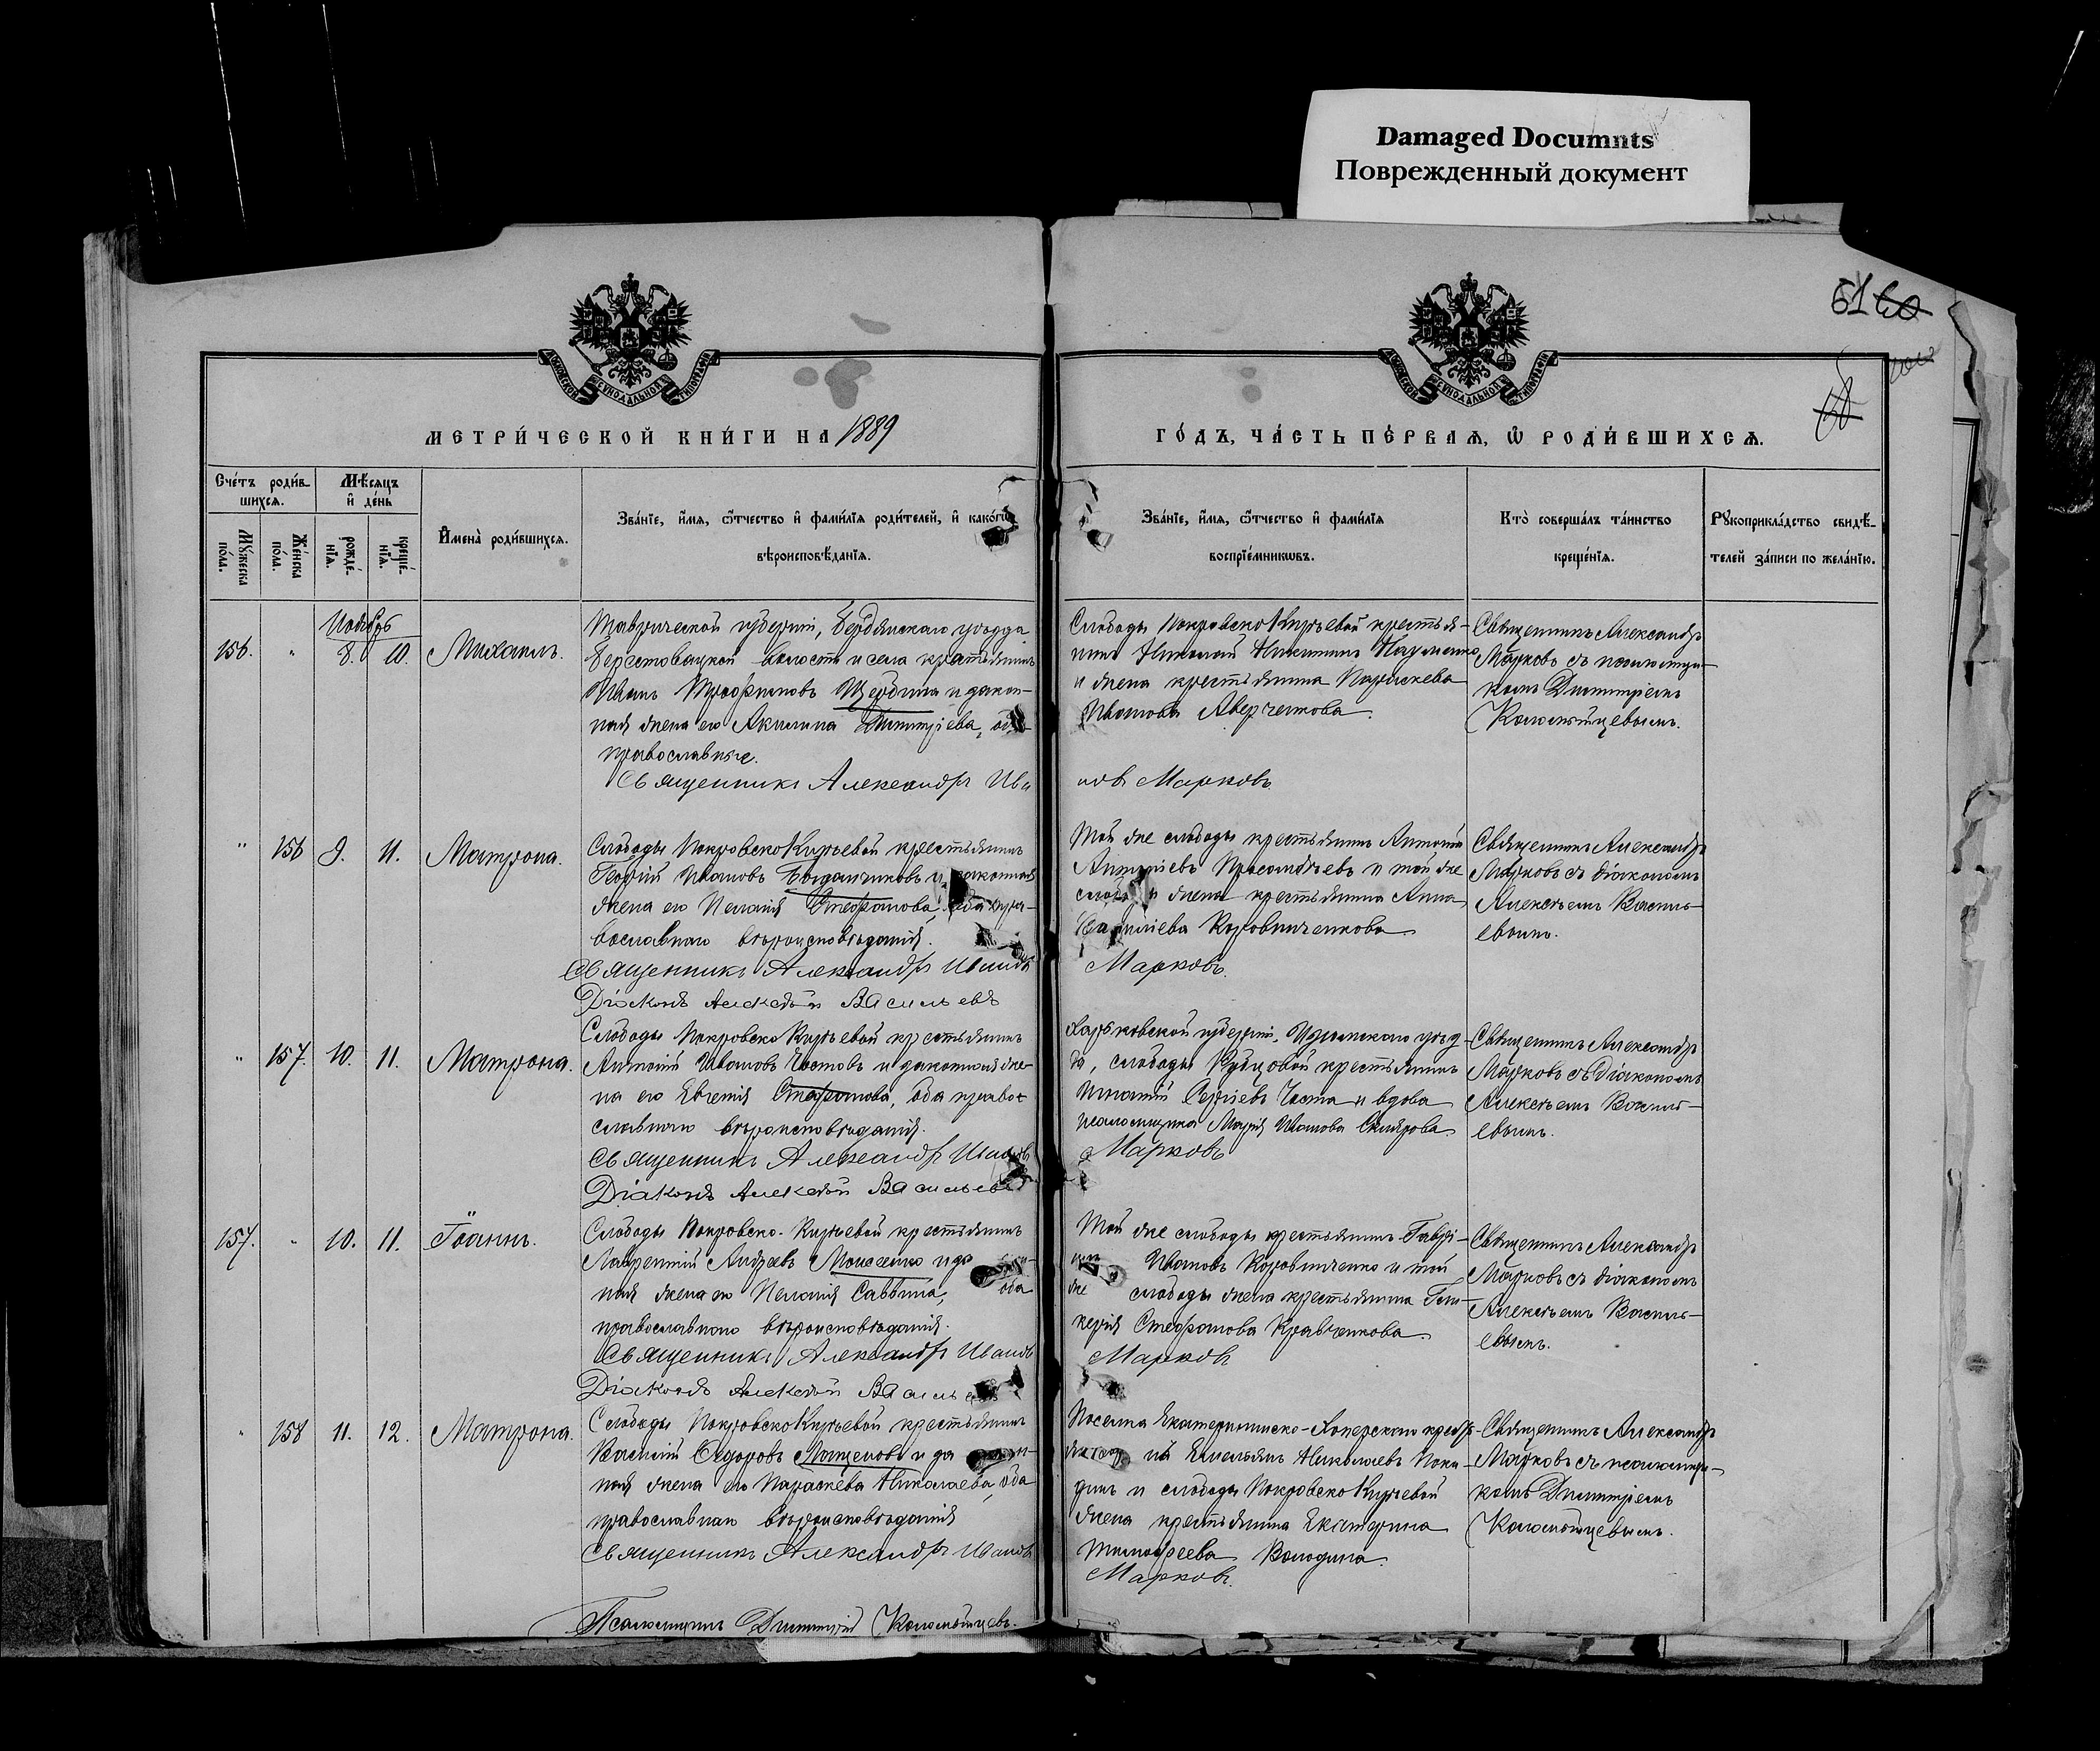 Damaged Documnts
Поврежденный документ
61
МЕТРИ́ЧЕСКОЙ КНИ́ГИ НА 1889
ГО́ДЪ, ЧА́СТЬ ПЕ́РВАЯ, Ѡ҆ РОДИ́ВШИХСЯ.
Сче́тъ роди́в-
шихся.
Мѣ́сяцъ
и҆ де́нь
Му́жеска
по́ла.
Же́нска
по́ла.
рожде́-
нїя.
креще́-
нїя.
И҆мена̀ роди́вшихся.
Зва́нїе, и҆́мя, ѻ҆́тчество и҆ фами́лїя роди́телей, и҆ како́гѡ
вѣроисповѣ́данїя.
Зва́нїе, и҆́мя, ѻ҆́тчество и҆ фами́лїя
воспрїе́мникѡвъ.
Кто̀ соверша́лъ та́инство
креще́нїя.
Рꙋкоприкла́дство свидѣ́-
телей за́писи по жела́нїю.
Ноябрь
156. " 8. 10. Михаилъ.
Таврической губерніи, Бердянскаго уѣзда
Берестовацкой волости и села крестьянинъ
Иванъ Трофимовъ Щербина и закон-
ная жена его Акилина Димитріева, оба
православные.
Священникъ Александръ Ива
Слободы ПокровскоКирѣевой крестья-
нинъ Николай Никитинъ Науменко
и жена крестьянина Параскева
Иванова Аверченкова.
новъ Марковъ
Священникъ Александръ
Марковъ съ псаломщи-
комъ Димитріемъ
Коломійцевымъ.
" 156 9. 11. Матрона.
Слободы ПокровскоКирѣевой крестьянинъ
Георгій Ивановъ Богданчиковъ и законная
жена его Пелагія Стефанова, оба пра-
вославнаго вѣроисповѣданія.
Священникъ Александръ Ивановъ
Діаконъ Алексѣй Васильевъ
Той же слободы крестьянинъ Антоній
и той же
жена крестьянина Анна
Коровниченкова
Марковъ.
Священникъ Александръ
Марковъ съ діакономъ
Алексѣемъ Василь-
евымъ.
" 157. 10. 11. Матрона.
Слободы ПокровскоКирѣевой крестьянинъ
Антоній Ивановъ Чистовъ и законная же-
на его Евгенія Стефанова, оба право-
славнаго вѣроисповѣданія.
Священникъ Александръ Ивановъ
Діаконъ Алексѣй Васильевъ
Харьковской губерніи, Изюмскаго уѣз-
да, слободы Кубцовой крестьянинъ
Игнатій Сергіевъ Чиста и вдова
псаломщика Марія Иванова Склярова
Марковъ
Священникъ Александръ
Марковъ съ діакономъ
Алексѣемъ Василь-
евымъ.
157. " 10. 11. Іоаннъ.
Слободы Покровско-Кирѣевой крестьянинъ
Лаврентій Андреевъ Моисеенко и за
ная жена его Пелагія Саввина, оба
православнаго вѣроисповѣданія.
Священникъ Александръ Ивановъ
Діаконъ Алексѣй Васильевъ
Той же слободы крестьянинъ Гаврі-
илъ Ивановъ Коровниченко и той
же слободы жена крестьянина Гли-
керія Стефанова Кравченкова
Марковъ
Священникъ Александръ
Марковъ съ діакономъ
Алексѣемъ Василь-
евымъ.
" 158 11. 12. Матрона.
Слободы ПокровскоКирѣевой крестьянинъ
Василій Ѳедоровъ Лащеновъ и за
ная жена его Параскева Николаева, оба
православнаго вѣроисповѣданія
Священникъ Александръ Ивановъ
Псаломщикъ Димитрій Коломійцевъ.
Поселка Екатерининско-Хоперскаго
Емельянъ Николаевъ
и слободы ПокровскоКирѣевой
жена крестьянина Екатерина
Тимофеева Володина.
Марковъ.
Священникъ Александръ
Марковъ съ псаломщи-
комъ Димитріемъ
Коломійцевымъ.